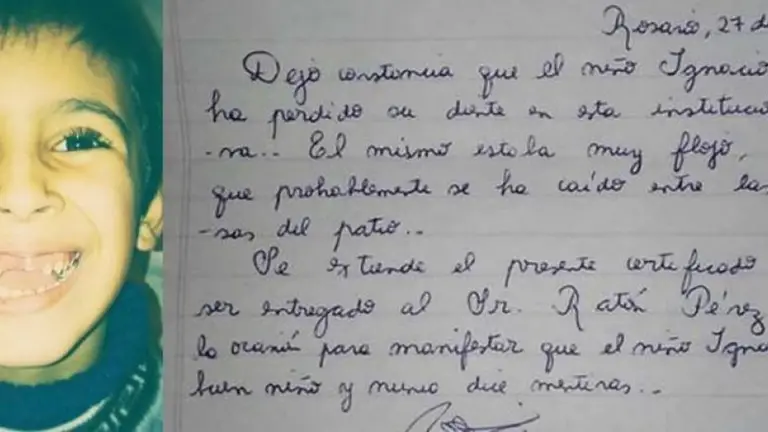 Rosario, 27 de
Dejo constancia que el niño Ignacio
ha perdido su diente en esta institució
-na.. El mismo estaba muy flojo,
que probablemente se ha caído entre las
-sas del patio..
Se extiende el presente certificado
ser entregado al Sr. Ratón Pérez
la ocasión para manifestar que el niño Igna
buen niño y nunca dice mentiras..